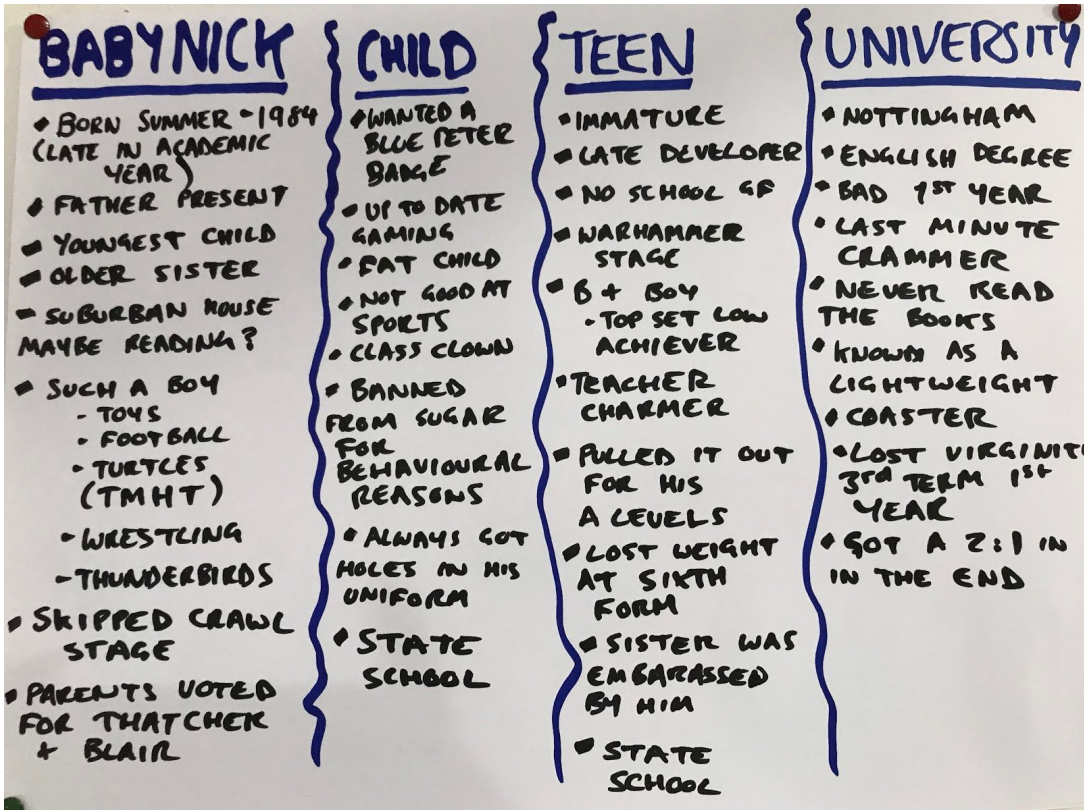 BABY NICK
• BORN SUMMER - 1984
(LATE IN ACADEMIC
YEAR)
• FATHER PRESENT
• YOUNGEST CHILD
• OLDER SISTER
• SUBURBAN HOUSE
MAYBE READING?
• SUCH A BOY
- TOYS
- FOOTBALL
- TURTLES
(TMHT)
- WRESTLING
- THUNDERBIRDS
• SKIPPED CRAWL
STAGE
• PARENTS VOTED
FOR THATCHER
+ BLAIR
CHILD
• WANTED A
BLUE PETER
BADGE
• UP TO DATE
GAMING
• FAT CHILD
• NOT GOOD AT
SPORTS
• CLASS CLOWN
• BANNED
FROM SUGAR
FOR
BEHAVIOURAL
REASONS
• ALWAYS GOT
HOLES IN HIS
UNIFORM
• STATE
SCHOOL
TEEN
• IMMATURE
• LATE DEVELOPER
• NO SCHOOL GF
• WARHAMMER
STAGE
• B + BOY
- TOP SET LOW
ACHIEVER
• TEACHER
CHARMER
• PULLED IT OUT
FOR HIS
A LEVELS
• LOST WEIGHT
AT SIXTH
FORM
• SISTER WAS
EMBARASSED
BY HIM
• STATE
SCHOOL
UNIVERSITY
• NOTTINGHAM
• ENGLISH DEGREE
• BAD 1ST YEAR
• LAST MINUTE
CRAMMER
• NEVER READ
THE BOOKS
• KNOWN AS A
LIGHTWEIGHT
• COASTER
• LOST VIRGINIT
3rd TERM 1ST
YEAR
• GOT A 2:1 IN
IN THE END